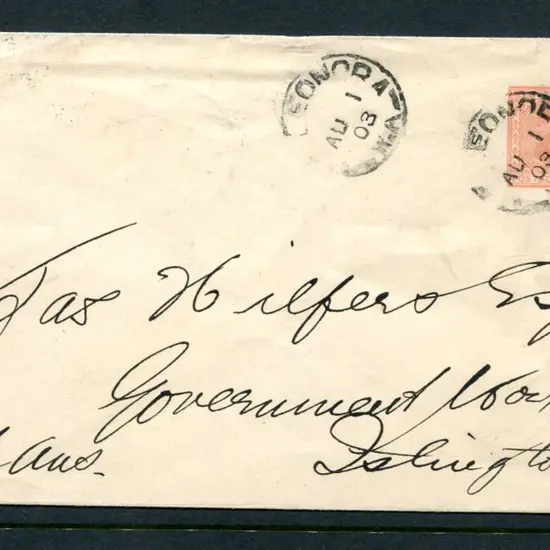 EONORA W.A.
AU 1
03
EONOR
AU 1
03
Jas Hilfers Es
Government Wo
ans. Islingto